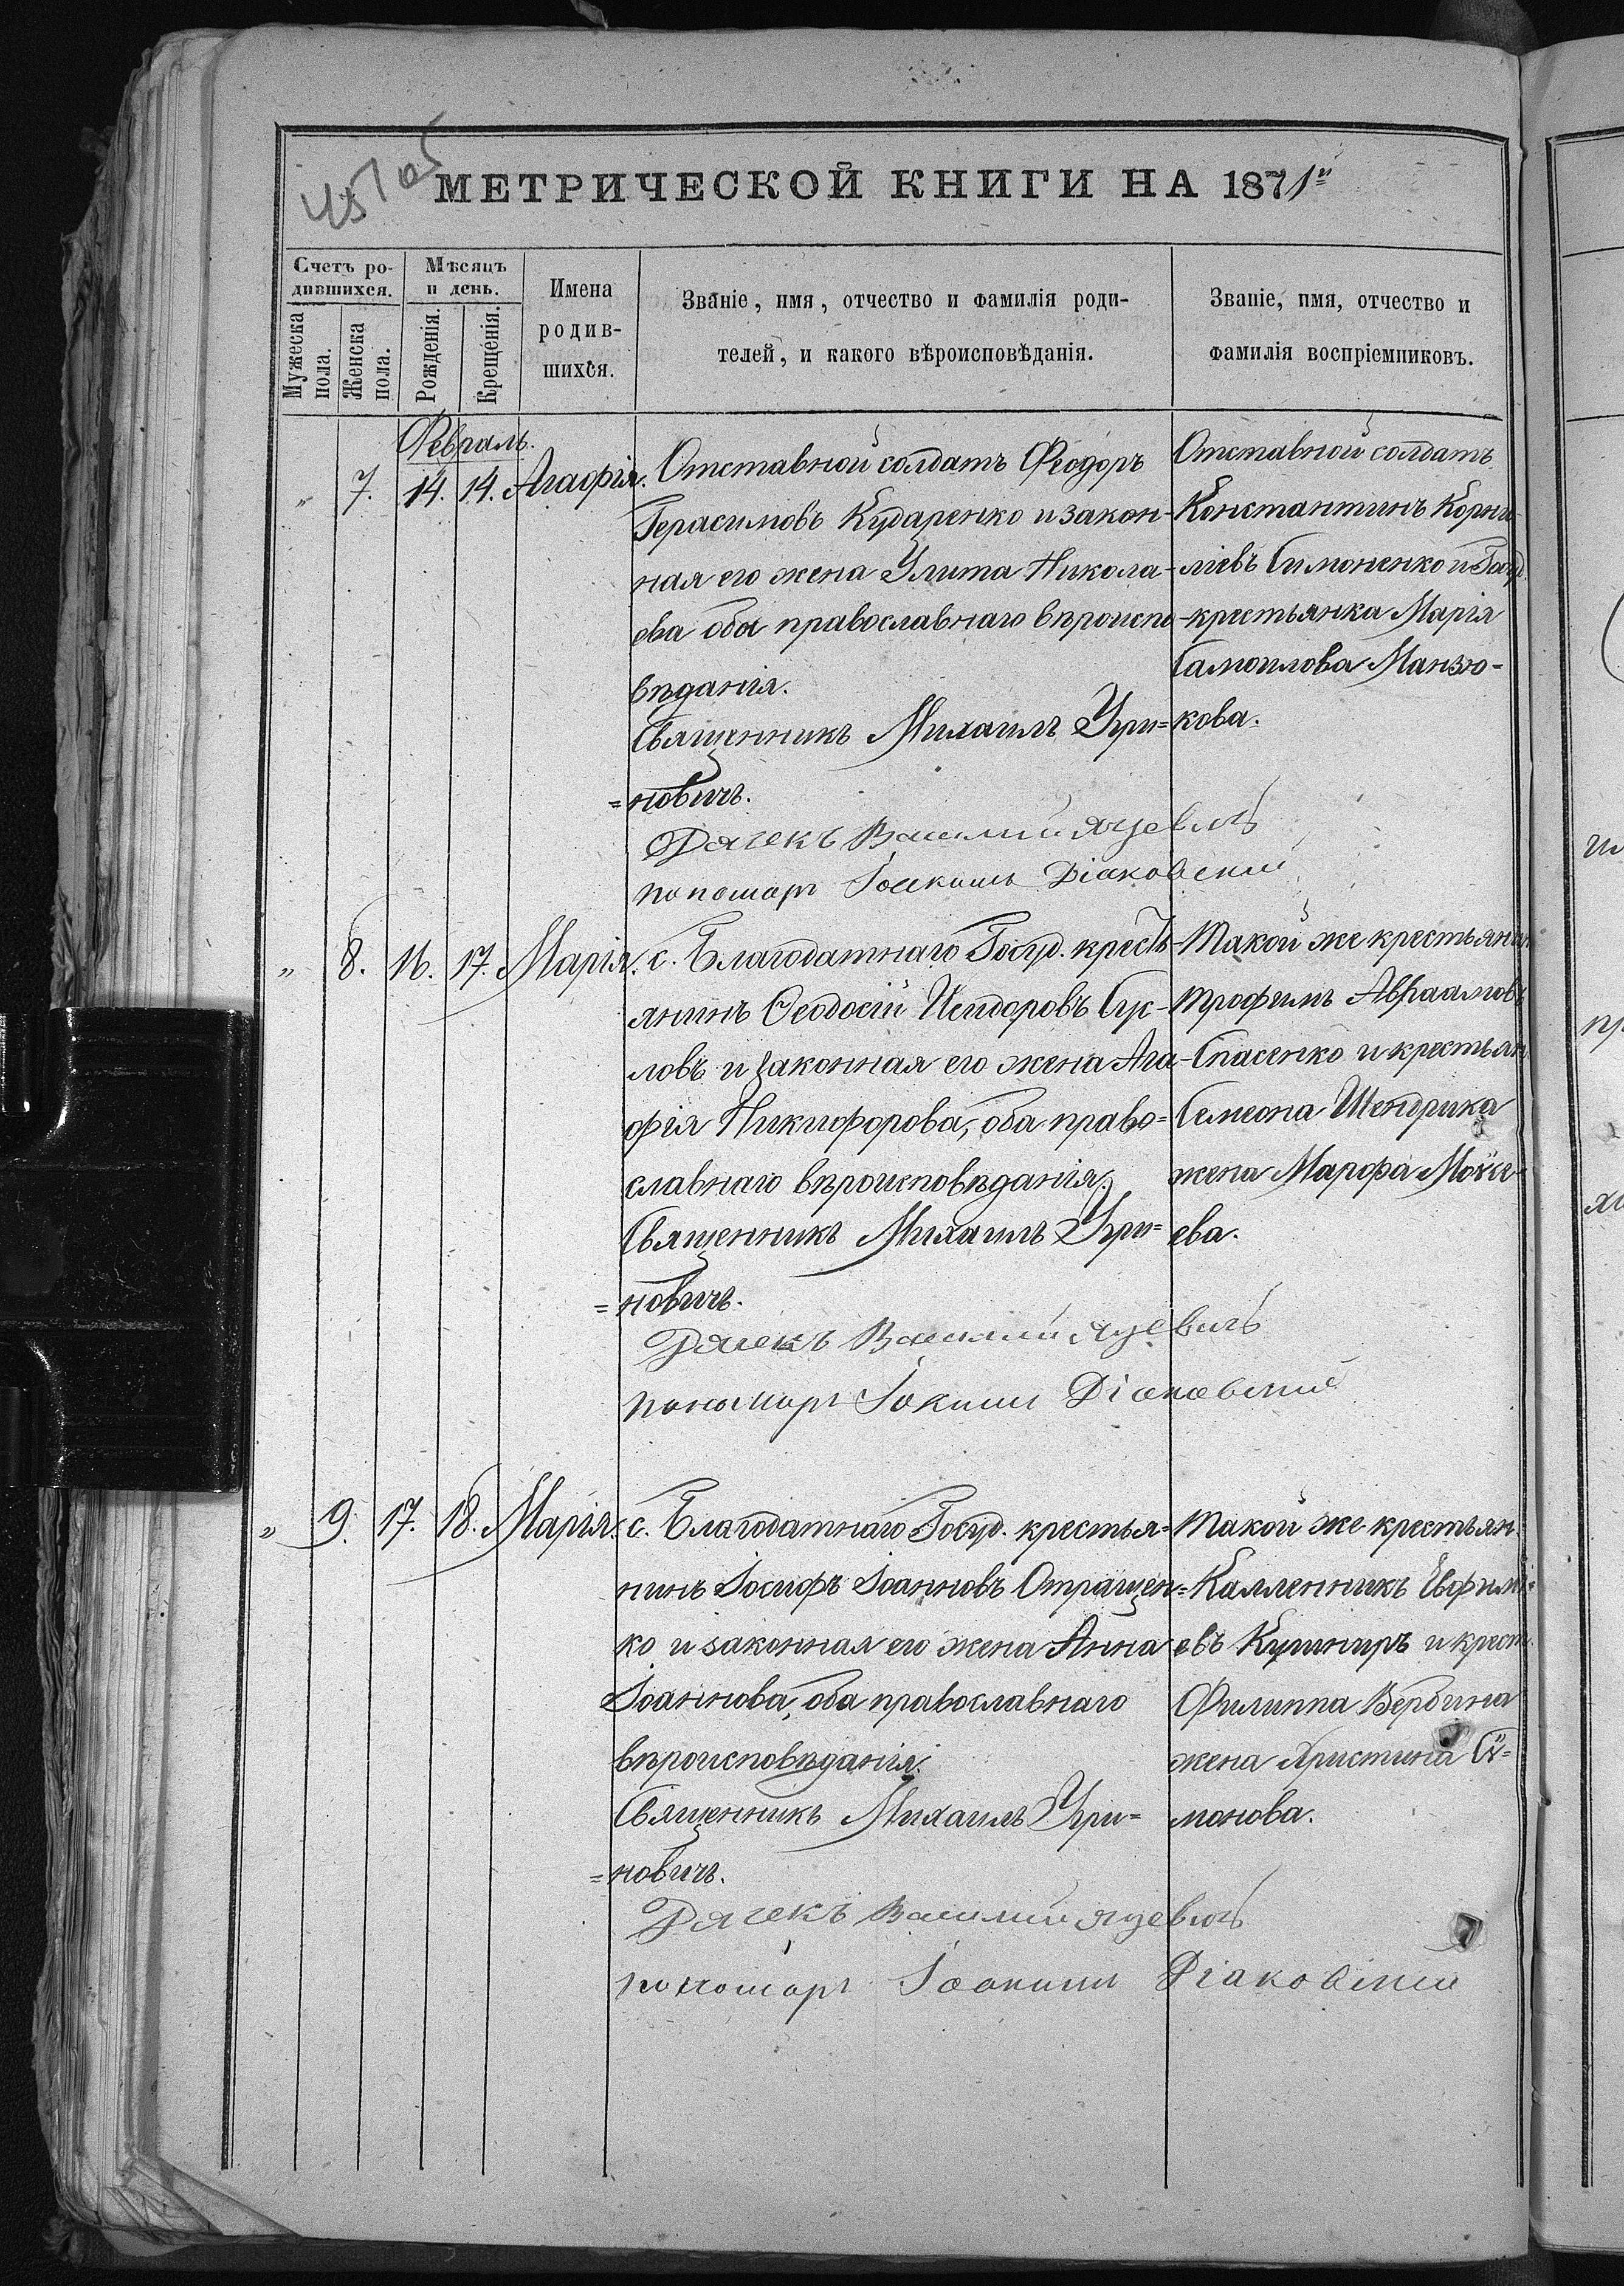 457 об
МЕТРИЧЕСКОЙ КНИГИ НА 1871й
Счетъ ро-
дившихся.
Мужеска пола.
Женска пола.
Мѣсяцъ
и день.
Рожденія.
Крещенія.
Имена
родив-
шихся.
Званіе, имя, отчество и фамилія роди-
телей, и какого вѣроисповѣданія.
Званіе, имя, отчество и
фамилія воспріемниковъ.
Февраль.
" 7. 14. 14. Агафія.
Отставной солдатъ Феодоръ
Герасимовъ Кударенко и закон-
ная его жена Улита Никола-
ева оба православнаго вѣроиспо-
вѣданія.
Священникъ Михаилъ Угри=
=новичъ.
Дячекъ Василий Яцевичъ
пономарь Іоакимъ Діаковский
Отставной солдатъ
Константинъ Корни-
ліевъ Симоненко и Госуд.
крестьянка Марія
Самоилова Манзю-
кова.
" 8. 16. 17. Марія.
с. Благодатнаго Госуд. кресть-
янинъ Ѳеодосій Исидоровъ Сус-
ловъ и законная его жена Ага-
фія Никифорова, оба право=
славнаго вѣроисповѣданія.
Священникъ Михаилъ Угри=
=новичъ.
Дячекъ Василий Яцевичъ
пономарь Іокимъ Діаковский
Такой же крестьянин
Трофимъ Авраамовъ
Спасенко и крестьян.
Семеона Шендрика
жена Марфа Мокіе-
ева.
" 9. 17. 18. Марія.
с. Благодатнаго Госуд. крестья=
нинъ Іосифъ Іоанновъ Отращен=
ко и законная его жена Анна
Іоаннова, оба православнаго
вѣроисповѣданія.
Священникъ Михаилъ Угри=
=новичъ.
Дячекъ Василий Яцевичъ
пономарь Іоакимъ Діаковский
Такой же крестьян.
Калленникъ Евфимі=
евъ Кушниръ и крест.
Филиппа Вербина
жена Христина Си=
монова.